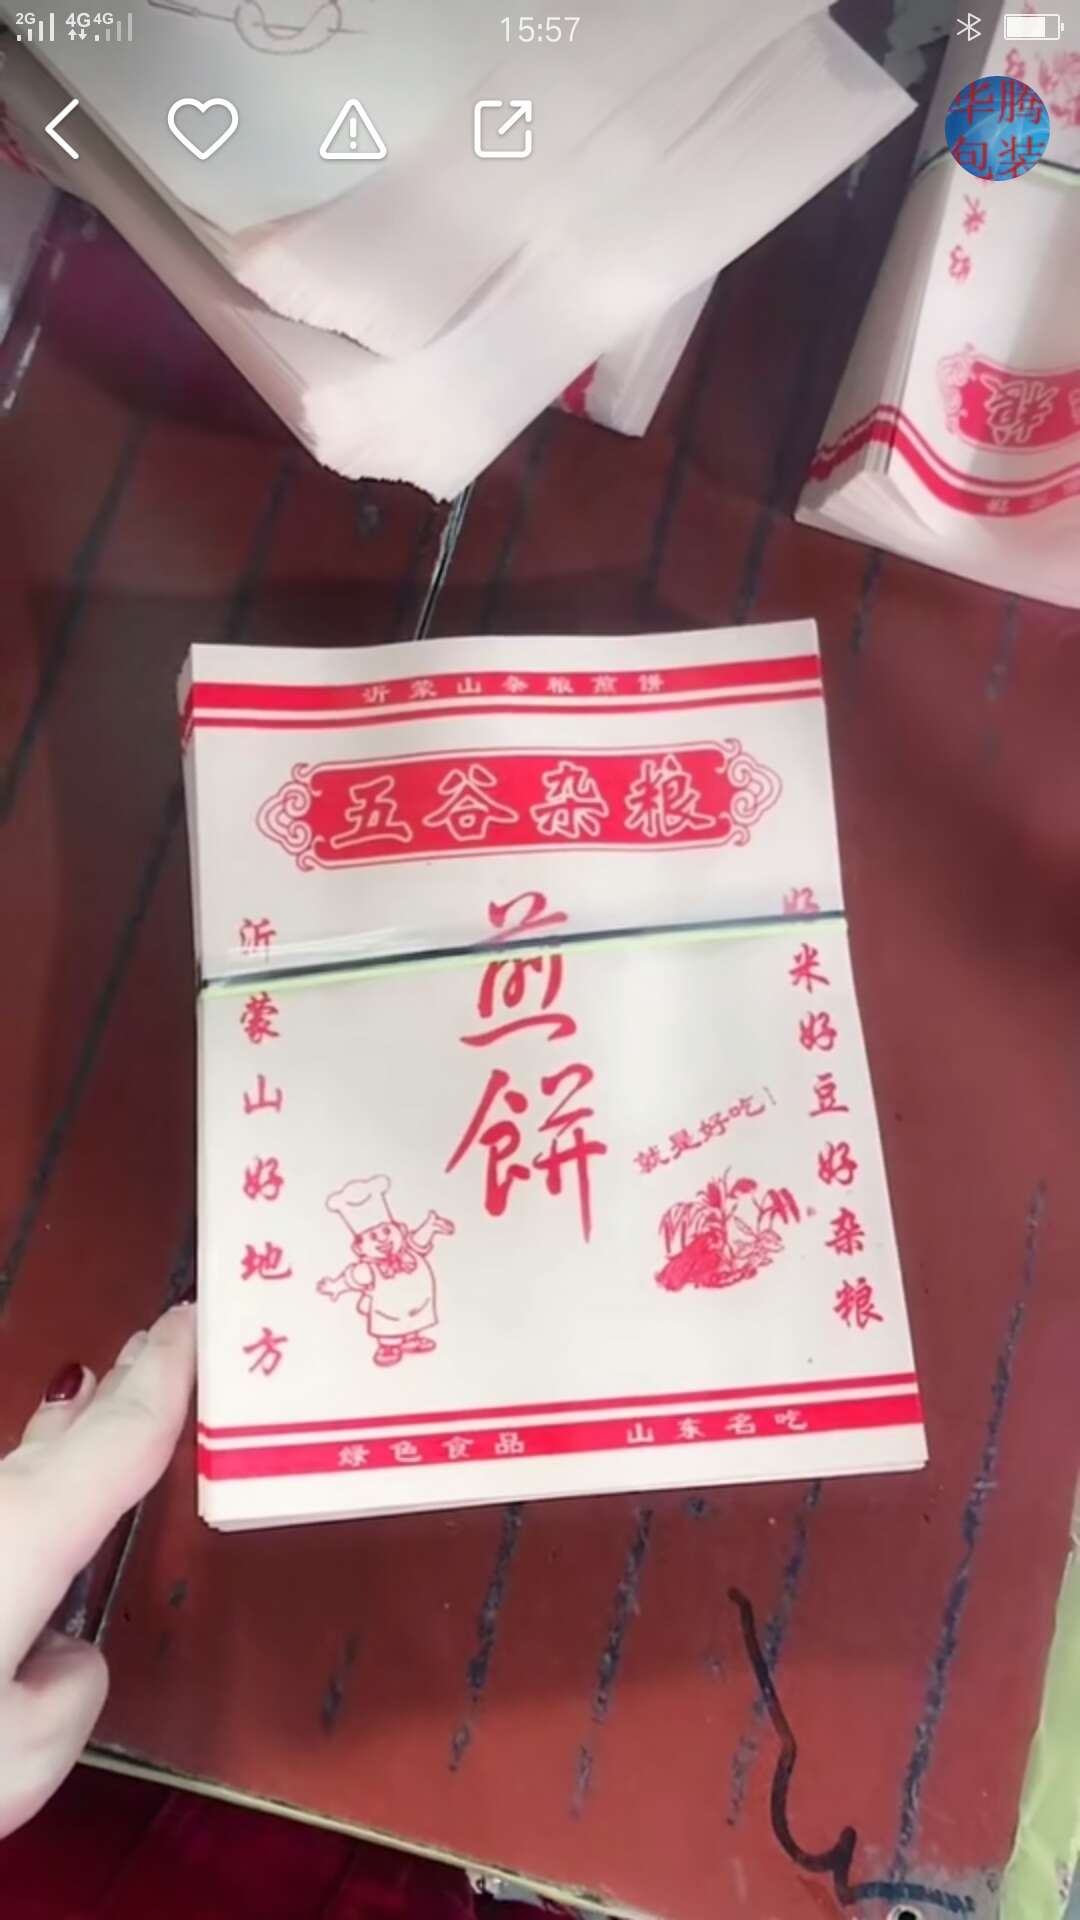 2G 4G 4G
15:57
华腾
包装
沂蒙山杂粮煎饼
五谷杂粮
煎餅
沂蒙山好地方
好米好豆好杂粮
就是好吃!
绿色食品 山东名吃
粮